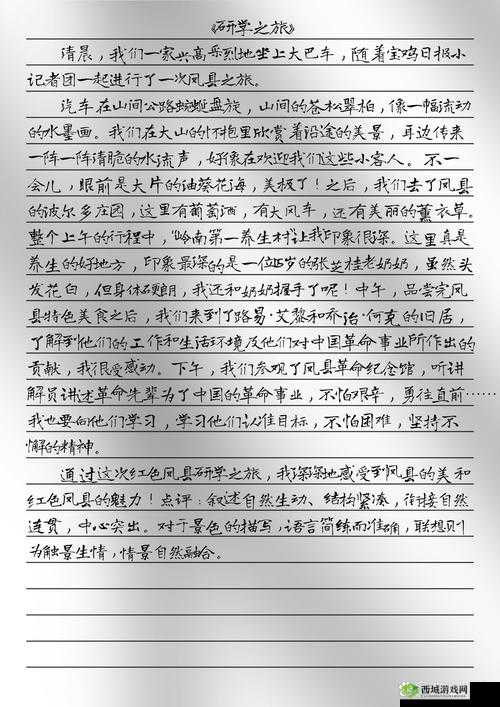 《研学之旅》
清晨，我们一家兴高采烈地坐上大巴车，随着宝鸡日报小
记者团一起进行了一次凤县之旅。
汽车在山间公路蜿蜒盘旋，山间的苍松翠柏，像一幅流动
的水墨画。我们在大山的怀抱里欣赏着沿途的美景，耳边传来
一阵一阵清脆的水流声，好像在欢迎我们这些小客人。不一
会儿，眼前是大片的油葵花海，美极了！之后，我们去了凤县
的波尔多庄园，这里有葡萄酒，有大风车，还有美丽的薰衣草。
整个上午的行程中，“岭南第一养生村”让我印象很深。这里真是
养生的好地方，印象最深的是一位 岁的张芝桂老奶奶，虽然头
发花白，但身体硬朗，我还和奶奶握手了呢！中午，品尝完凤
县特色美食之后，我们来到了路易·艾黎和乔治·何克的旧居，
了解到他们的工作和生活环境及他们对中国革命事业所作出的
贡献，我很受感动。下午，我们参观了凤县革命纪念馆，听讲
解员讲述革命先辈为了中国的革命事业，不怕艰辛，勇往直前……
我也要向他们学习，学习他们认准目标，不怕困难，坚持不
懈的精神。
通过这次红色凤县研学之旅，我深深地感受到凤县的美和
红色凤县的魅力！点评：叙述自然生动、结构紧凑，衔接自然
连贯，中心突出。对于景色的描写，语言简练而准确，联想则
为触景生情，情景自然融合。
西城游戏网